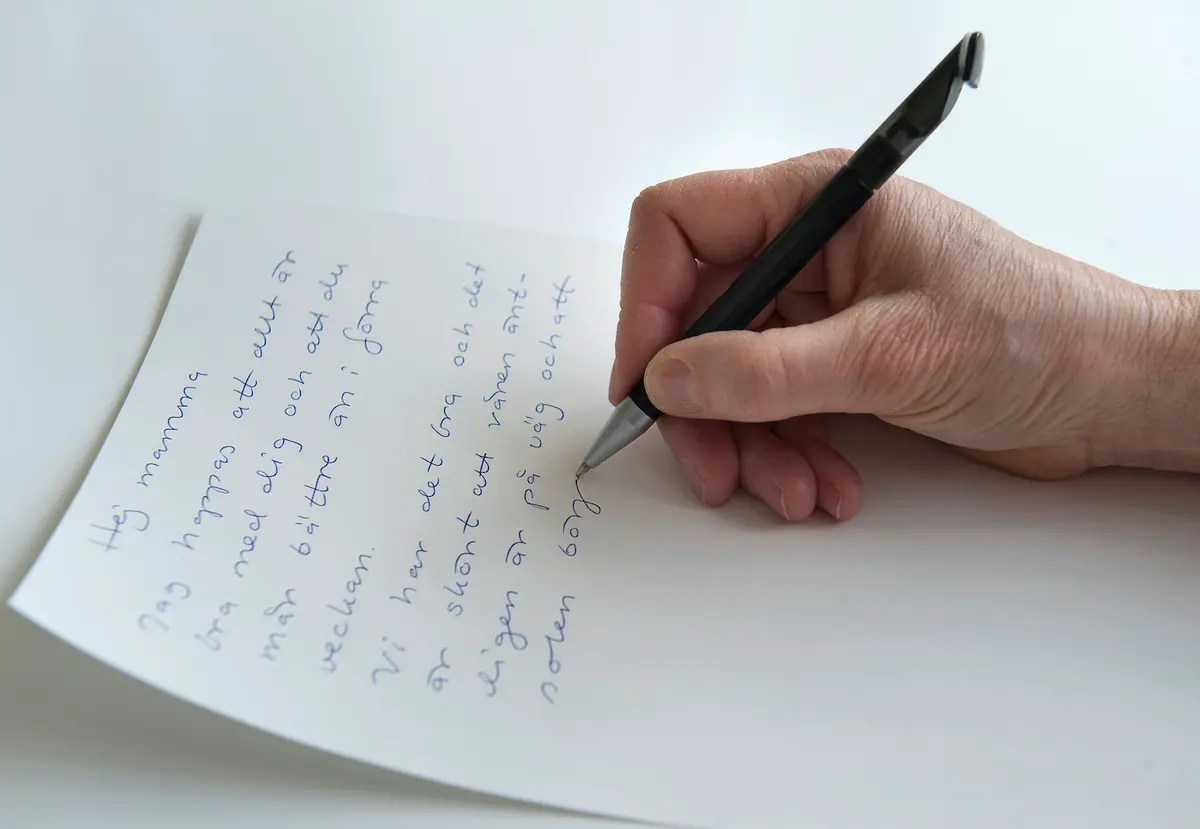 Hej mamma
Jag hoppas att allt är
bra med dig och att du
mår bättre än i förra
veckan.
Vi har det bra och det
är skönt att våren änt-
ligen är på väg och att
solen börj